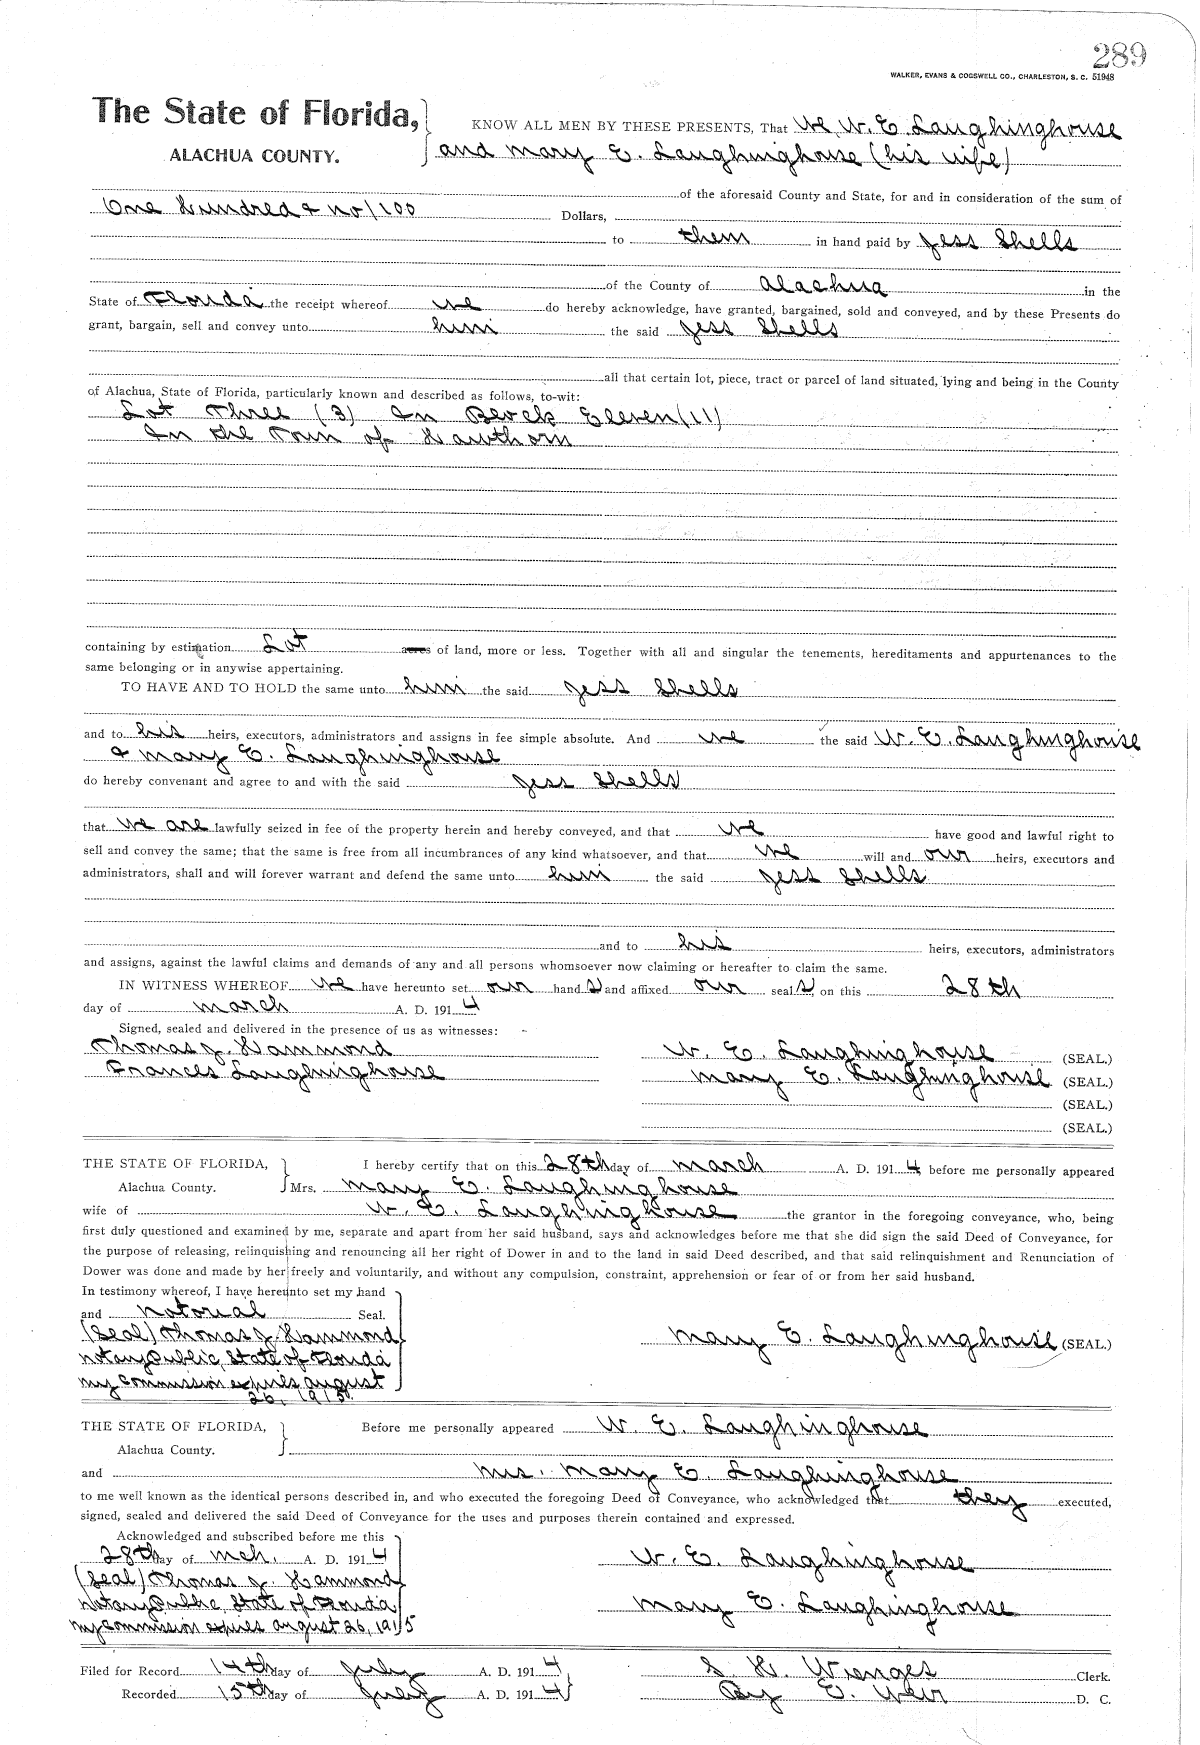 289
WALKER, EVANS & COGSWELL CO., CHARLESTON, S. C. 51948
The State of Florida,
KNOW ALL MEN BY THESE PRESENTS, That We W. E. Laughinghouse
ALACHUA COUNTY.
and Mary E. Laughinghouse (his wife)
of the aforesaid County and State, for and in consideration of the sum of
One Hundred & no/100 Dollars,
to them in hand paid by Jess Shells
of the County of Alachua in the
State of Florida the receipt whereof we do hereby acknowledge, have granted, bargained, sold and conveyed, and by these Presents do
grant, bargain, sell and convey unto him the said Jess Shells
all that certain lot, piece, tract or parcel of land situated, lying and being in the County
of Alachua, State of Florida, particularly known and described as follows, to-wit:
Lot Three (3) In Block Eleven (11)
In the Town of Hawthorn
containing by estimation Lot acres of land, more or less. Together with all and singular the tenements, hereditaments and appurtenances to the
same belonging or in anywise appertaining.
TO HAVE AND TO HOLD the same unto him the said Jess Shells
and to his heirs, executors, administrators and assigns in fee simple absolute. And we the said W. E. Laughinghouse
& Mary E. Laughinghouse
do hereby convenant and agree to and with the said Jess Shells
that we are lawfully seized in fee of the property herein and hereby conveyed, and that we have good and lawful right to
sell and convey the same; that the same is free from all incumbrances of any kind whatsoever, and that we will and our heirs, executors and
administrators, shall and will forever warrant and defend the same unto him the said Jess Shells
and to his heirs, executors, administrators
and assigns, against the lawful claims and demands of any and all persons whomsoever now claiming or hereafter to claim the same.
IN WITNESS WHEREOF we have hereunto set our hand s and affixed our seal s, on this 28th
day of March A. D. 191 4
Signed, sealed and delivered in the presence of us as witnesses:
Thomas J. Hammond W. E. Laughinghouse (SEAL.)
Frances Laughinghouse Mary E. Laughinghouse (SEAL.)
(SEAL.)
(SEAL.)
THE STATE OF FLORIDA, I hereby certify that on this 28th day of March A. D. 191 4 before me personally appeared
Alachua County. Mrs. Mary E. Laughinghouse
wife of W. E. Laughinghouse the grantor in the foregoing conveyance, who, being
first duly questioned and examined by me, separate and apart from her said husband, says and acknowledges before me that she did sign the said Deed of Conveyance, for
the purpose of releasing, relinquishing and renouncing all her right of Dower in and to the land in said Deed described, and that said relinquishment and Renunciation of
Dower was done and made by her freely and voluntarily, and without any compulsion, constraint, apprehension or fear of or from her said husband.
In testimony whereof, I have hereunto set my hand
and Notorial Seal.
(Seal) Thomas J. Hammond Mary E. Laughinghouse (SEAL.)
Notary Public, State of Florida
My Commission expires August
26, 1915.
THE STATE OF FLORIDA, Before me personally appeared W. E. Laughinghouse
Alachua County.
and Mrs. Mary E. Laughinghouse
to me well known as the identical persons described in, and who executed the foregoing Deed of Conveyance, who acknowledged that they executed,
signed, sealed and delivered the said Deed of Conveyance for the uses and purposes therein contained and expressed.
Acknowledged and subscribed before me this
28th day of Mch. A. D. 191 4 W. E. Laughinghouse
(Seal) Thomas J. Hammond
Notary Public State of Florida Mary E. Laughinghouse
My Commission expires August 26, 1915
Filed for Record 14th day of July A. D. 191 4 S. H. Wienges Clerk.
Recorded 15th day of July A. D. 191 4 By E. Weir D. C.